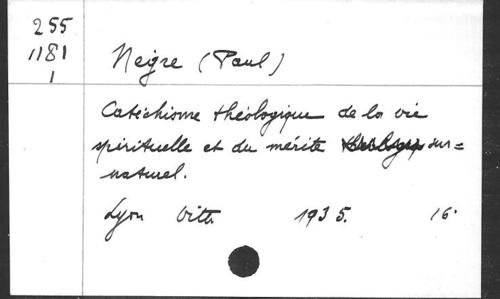 255
1181
1
Neyre (Paul)
Catéchisme théologique de la vie
spirituelle et du mérite sur=
naturel.
Lyon Vitte 1935. 16°